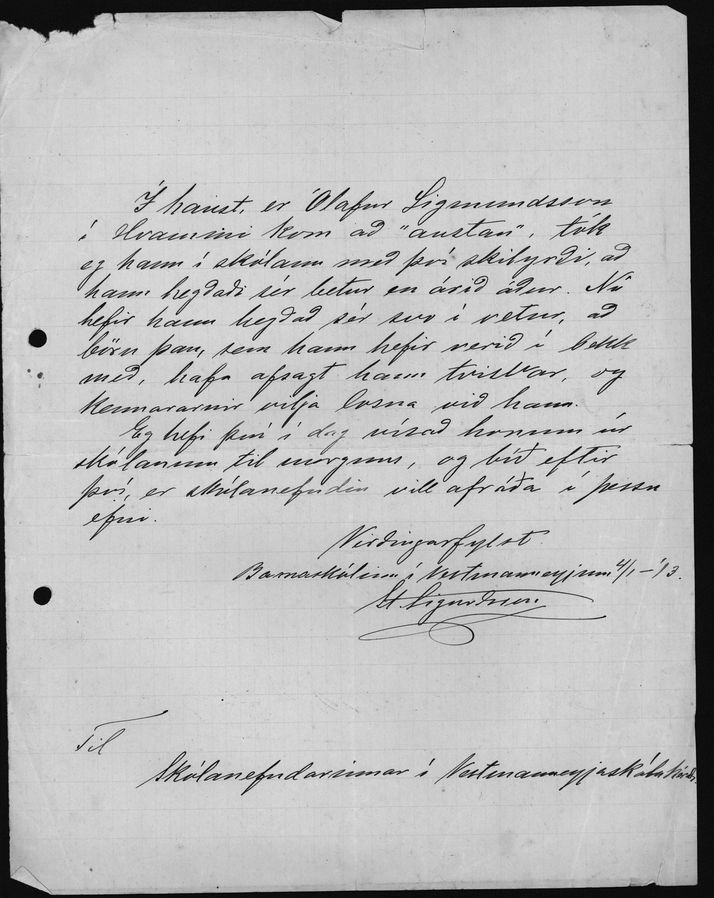 Í haust, er Ólafur Sigmundsson
í Hvammi kom að "austan", tók
eg hann í skólann með því skilyrði, að
hann hegðaði sér betur en árið áður. Nú
hefir hann hegðað sér svo í vetur, að
börn þau, sem hann hefir verið í bekk
með, hafa afsagt hann tvisvar, og
kennararnir vilja losna við hann.
Eg hefi því í dag vísað honum úr
skólanum til morguns, og bíð eftir
því, er skólanefndin vill afráða í þessu
efni.
Virðingarfylst.
Barnaskólinn í Vestmannaeyjum 4/1 - '13.
St Sigurðsson.
Til
Skólanefndarinnar í Vestmannaeyjaskóla